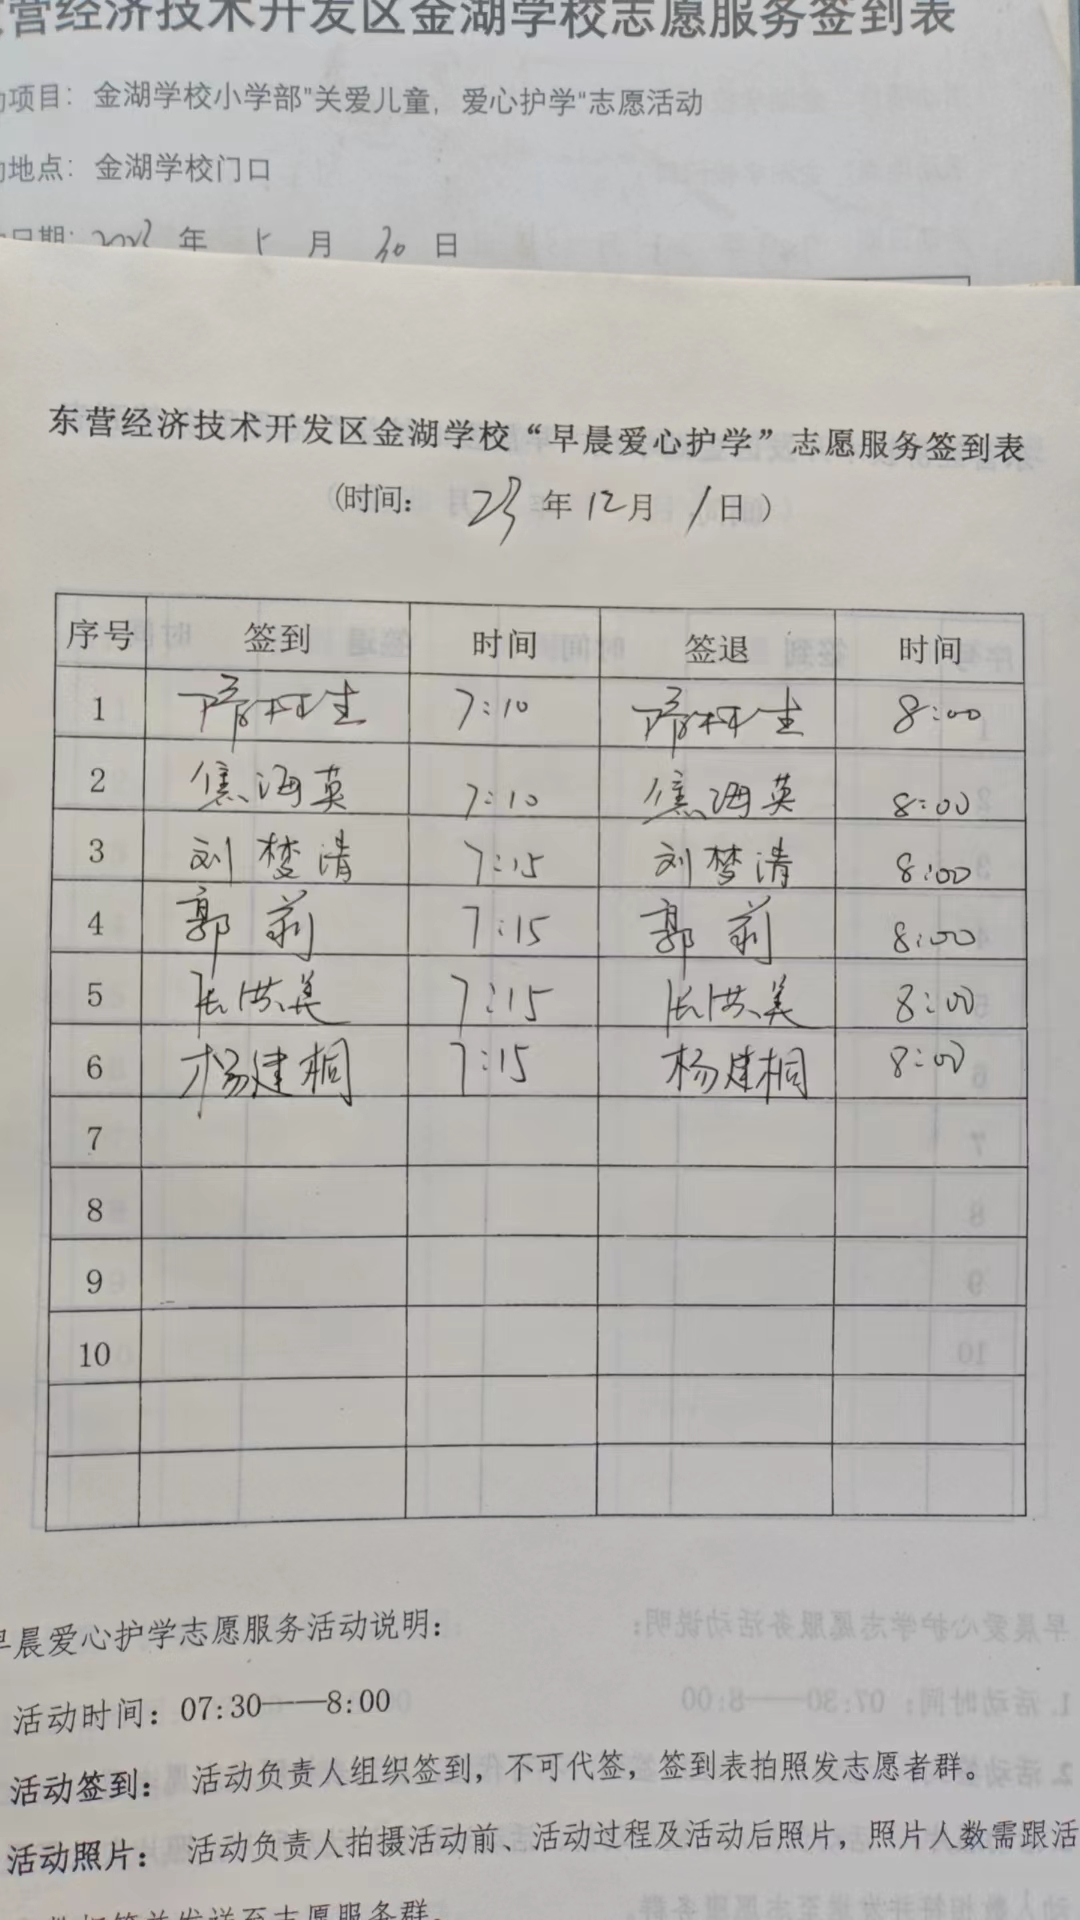 营经济技术开发区金湖学校志愿服务签到表
项目：金湖学校小学部"关爱儿童，爱心护学"志愿活动
地点：金湖学校门口
日期：2023年 5月 30日
东营经济技术开发区金湖学校“早晨爱心护学”志愿服务签到表
(时间： 23年12月 1日）
序号 签到 时间 签退 时间
1 7:10 8:00
2 焦海英 7:10 焦海英 8:00
3 刘梦清 7:15 刘梦清 8:00
4 郭莉 7:15 郭莉 8:00
5 张洪美 7:15 张洪美 8:00
6 杨建桐 7:15 杨建桐 8:00
7
8
9
10
早晨爱心护学志愿服务活动说明：
活动时间：07:30——8:00
活动签到： 活动负责人组织签到，不可代签，签到表拍照发志愿者群。
活动照片： 活动负责人拍摄活动前、活动过程及活动后照片，照片人数需跟活
发送至志愿服务群。